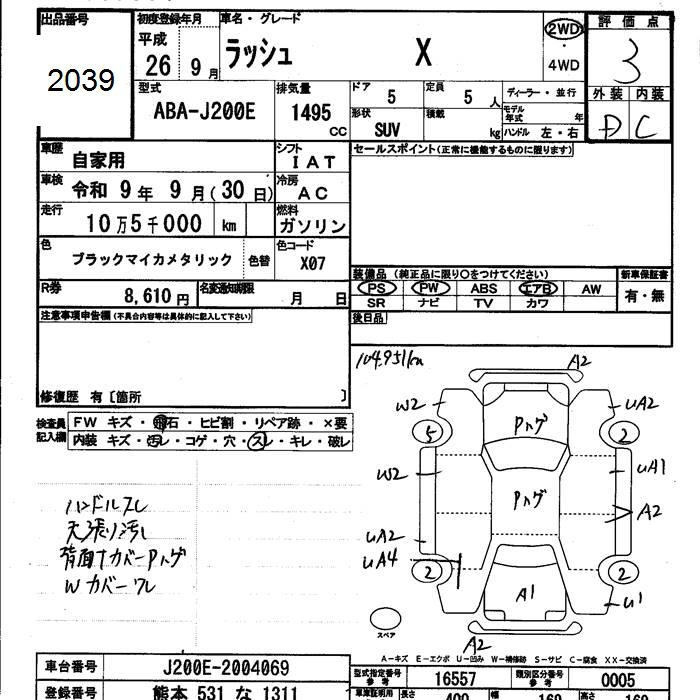 出品番号 初度登録年月 車名・グレード 評価点
2039 平成 26 9月 ラッシュ X 2WD ・ 4WD 3
型式 ABA-J200E 排気量 1495 CC ドア 5 定員 5 人 ディーラー・並行 外装 内装
形状 SUV 積載 kg モデル年式 年 ハンドル 左・右 D C
車歴 自家用 シフト IAT セールスポイント(正常に機能するものに限ります)
車検 令和 9年 9月(30日) 冷房 AC
走行 10万5千000 km 燃料 ガソリン
色 ブラックマイカメタリック 色替 色コード X07
装備品 (純正品に限り○をつけてください) 新車保証書
R券 8,610円 名変通知期限 月 日 PS PW ABS エアB AW 有・無
SR ナビ TV カワ
注意事項申告欄(不具合内容等は具体的に記入して下さい) 後日品
修復歴 有〔箇所 〕
検査員記入欄 FW キズ・飛石・ヒビ割・リペア跡・×要
内装 キズ・汚レ・コゲ・穴・スレ・キレ・破レ
104,951km
A2
W2 UA2
5 Pハゲ 2
W2 UA1
Pハゲ
A2
UA2
UA4
2 2
A1 U1
スペア
A2
ハンドルスレ
天張り汚レ
背面TカバーPハゲ
Wカバーワレ
A-キズ E-エクボ U-凹み W-補修跡 S-サビ C-腐食 XX-交換済
車台番号 J200E-2004069 型式指定番号 参考 16557 類別区分番号 参考 0005
登録番号 熊本 531 な 1311 車庫証明用 長さ 400 幅 169 高さ 169